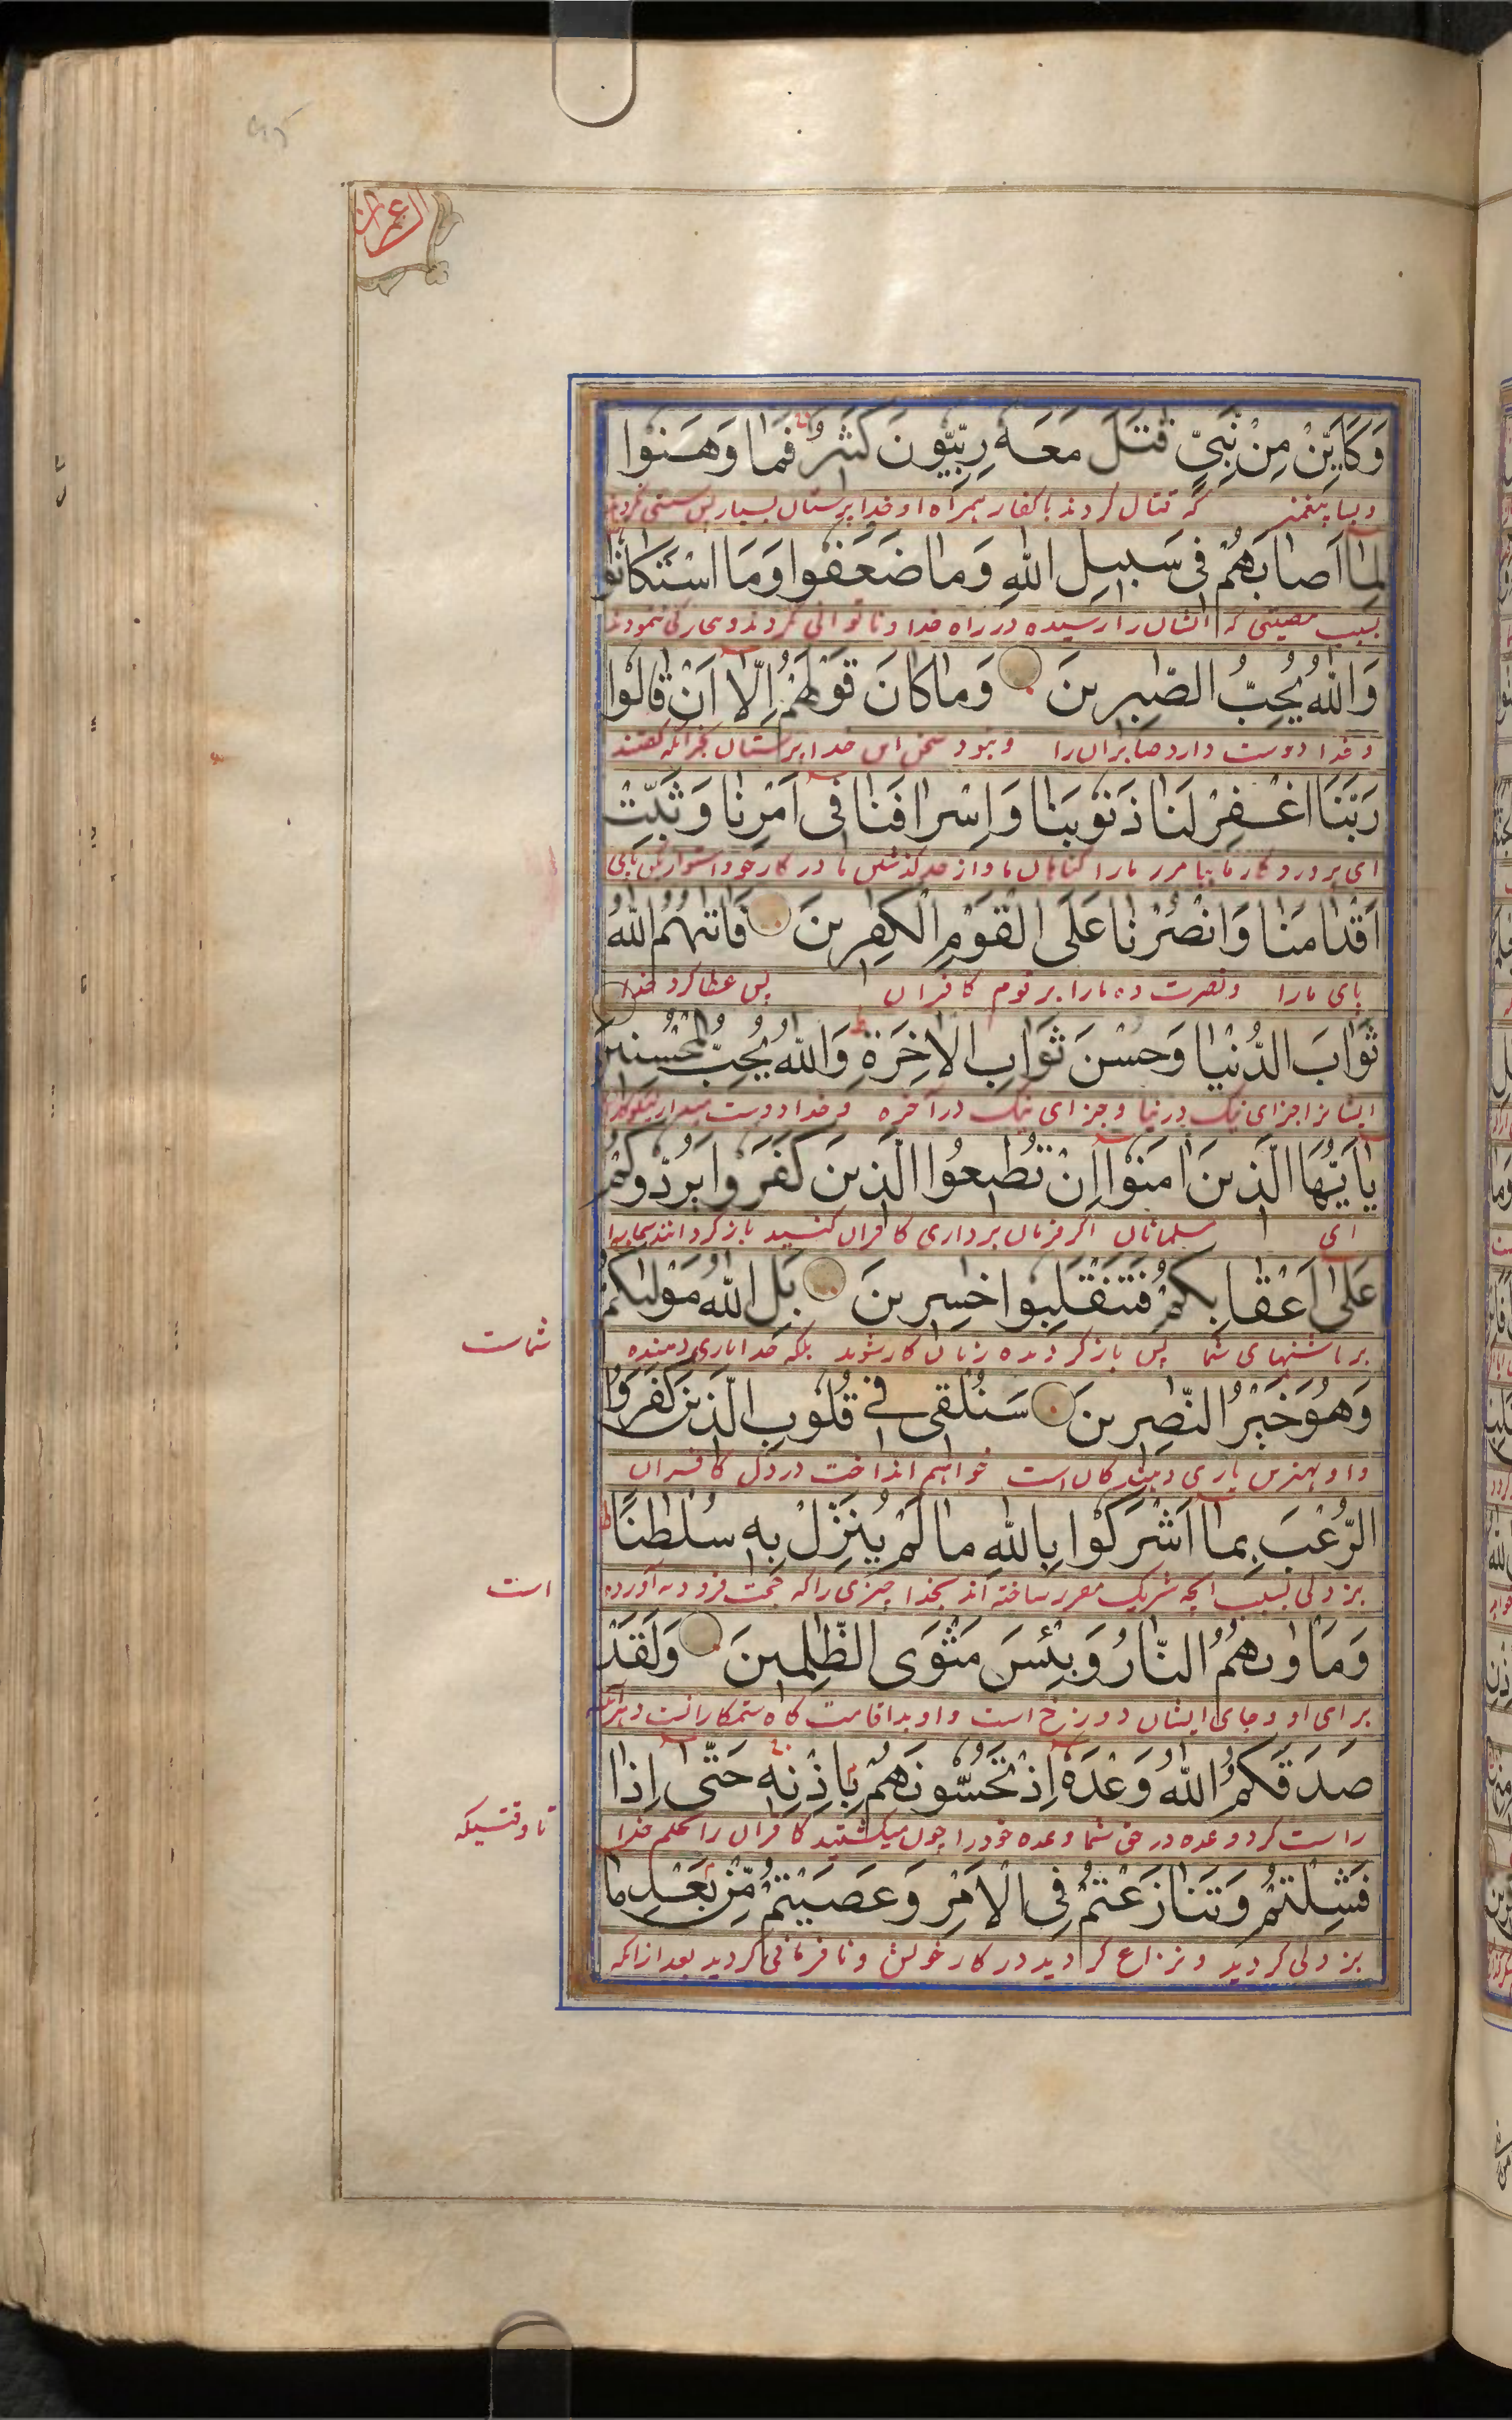 عمران
وَكَاَيِّنْ مِنْ نَبِيٍّ قٰتَلَ مَعَهٗ رِبِّيُّونَ كَثِيرٌ فَمَا وَهَنُوا
و بسا پیغمبر که قتال کردند با کفار همراه او خدا پرستان بسیار پس سستی نکردند
لِمَا اَصَابَهُمْ فِى سَبِيلِ اللهِ وَمَا ضَعَفُوا وَمَا اسْتَكَانُوا
بسبب مصیبتی که ایشان را رسیده در راه خدا و ناتوانی نکردند و بیچارگی ننمودند
وَاللهُ يُحِبُّ الصّٰبِرِينَ وَمَا كَانَ قَوْلَهُمْ اِلَّا اَنْ قَالُوا
و خدا دوست دارد صابران را و نبود سخن این خدا پرستان بجز آنکه گفتند
رَبَّنَا اغْفِرْ لَنَا ذُنُوبَنَا وَاِسْرَافَنَا فِى اَمْرِنَا وَثَبِّتْ
ای پروردگار ما بیامرز ما را گناهان ما و از حد گذشتن ما در کار خود و استوار کن پای
اَقْدَامَنَا وَانْصُرْنَا عَلَى الْقَوْمِ الْكٰفِرِينَ فَاٰتٰىهُمُ اللهُ
پای ما را و نصرت ده ما را بر قوم کافران پس عطا کرد خدا
ثَوَابَ الدُّنْيَا وَحُسْنَ ثَوَابِ الْاٰخِرَةِ وَاللهُ يُحِبُّ الْمُحْسِنِينَ
ایشانرا جزای نیک در دنیا و جزای نیک در آخره و خدا دوست میدارد نیکوکاران
يٰاَيُّهَا الَّذِينَ اٰمَنُوا اِنْ تُطِيعُوا الَّذِينَ كَفَرُوا يَرُدُّوكُمْ
ای مسلمانان اگر فرمان برداری کافران کنید باز گردانند شما را
عَلٰى اَعْقَابِكُمْ فَتَنْقَلِبُوا خٰسِرِينَ بَلِ اللهُ مَوْلٰىكُمْ
بر پاشنهای شما پس باز گردیده زیان کار شوید بلکه خدا یاری دهنده
شماست
وَهُوَ خَيْرُ النّٰصِرِينَ سَنُلْقِى فِى قُلُوبِ الَّذِينَ كَفَرُوا
و او بهترین یاری دهندگان است خواهیم انداخت در دل کافران
الرُّعْبَ بِمَا اَشْرَكُوا بِاللهِ مَا لَمْ يُنَزِّلْ بِهٖ سُلْطٰنًا
بزدلی بسبب آنچه شریک مقرر ساخته اند بخدا چیزی را که حجت فرود نه آورده
است
وَمَاْوٰىهُمُ النَّارُ وَبِئْسَ مَثْوَى الظّٰلِمِينَ وَلَقَدْ
برای او و جای ایشان دوزخ است و او بد اقامت گاه ستمکارانست و هر آئنه
صَدَقَكُمُ اللهُ وَعْدَهٗ اِذْ تَحُسُّونَهُمْ بِاِذْنِهٖ حَتّٰى اِذَا
راست کرد وعده در حق شما وعده خود را چون میکشتید کافران را بحکم خدا
تا وقتیکه
فَشِلْتُمْ وَتَنَازَعْتُمْ فِى الْاَمْرِ وَعَصَيْتُمْ مِّنْ بَعْدِ مَا
بزدلی کردید و نزاع کردید در کار خویش و نافرمانی کردید بعد از آنکه